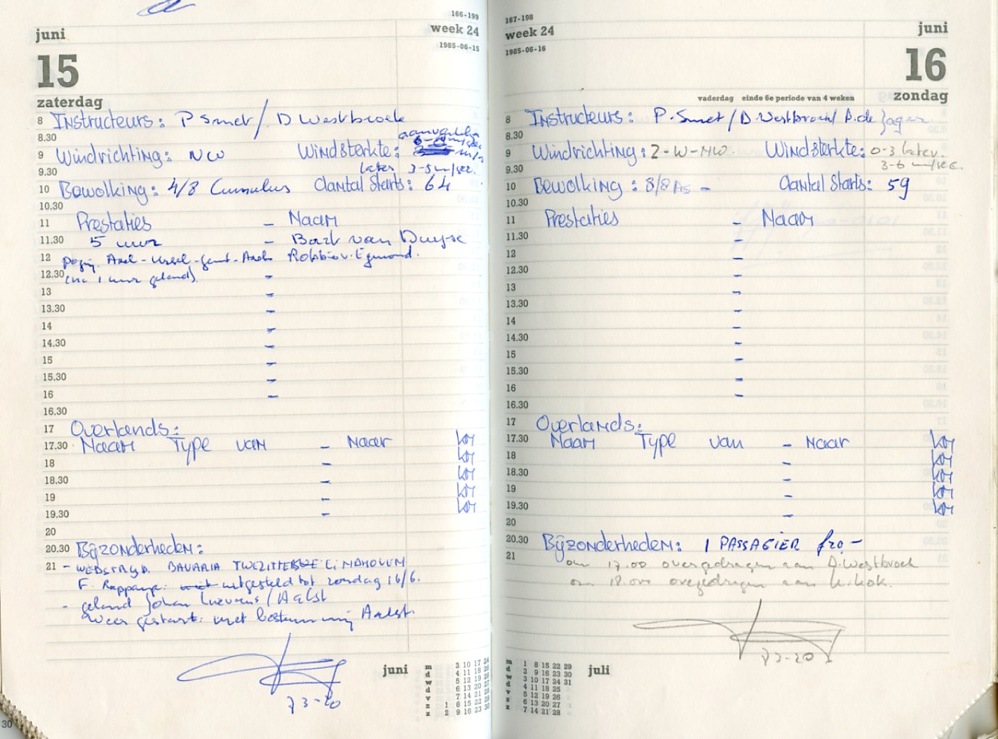 juni
166-199
week 24
1985-06-15
15
zaterdag
8 Instructeurs: P Smet / D Westbroek
8.30 aanvankelijk
9 Windrichting: NW Windsterkte:
9.30 later 3-5 m/sec.
10 Bewolking: 4/8 Cumulus Aantal Starts: 64
10.30
11 Prestaties - Naam
11.30 5 uur - Bart van
12 Axel - - Gent - Axel Robbie v. Egmond.
12.30 (na 1 uur geland). -
13 -
13.30 -
14 -
14.30 -
15 -
15.30 -
16 -
16.30
17 Overlands:
17.30 Naam Type van - Naar km
18 - km
18.30 - km
19 - km
19.30 - km
20
20.30 Bijzonderheden:
21 - WEDSTRYD BAVARIA TWEZITTER EINDHOVEN
F. uitgesteld tot zondag 16/6.
- geland Johan Lievens / Aalst
weer gestart met bestemming Aalst.
73-20
juni
m 3 10 17 24
d 4 11 18 25
w 5 12 19 26
d 6 13 20 27
v 7 14 21 28
z 1 8 15 22 29
z 2 9 16 23 30
30
167-198
week 24
1985-06-16
juni
16
vaderdag einde 6e periode van 4 weken
zondag
8 Instructeurs: P. Smet / D. Westbroek / A. de Jager
8.30
9 Windrichting: Z-W-NW. Windsterkte: 0-3 later.
9.30 3-6 m/sec.
10 Bewolking: 8/8 As - Aantal Starts: 59
10.30
11 Prestaties - Naam
11.30 -
12 -
12.30 -
13 -
13.30 -
14 -
14.30 -
15 -
15.30 -
16 -
16.30
17 Overlands:
17.30 Naam Type van - Naar km
18 - km
18.30 - km
19 - km
19.30 - km
20
20.30 Bijzonderheden: 1 PASSAGIER f 20,-
21 om 17.00 overgedragen aan D. Westbroek
om 18.00 overgedragen aan Kok.
73-20
juli
m 1 8 15 22 29
d 2 9 16 23 30
w 3 10 17 24 31
d 4 11 18 25
v 5 12 19 26
z 6 13 20 27
z 7 14 21 28